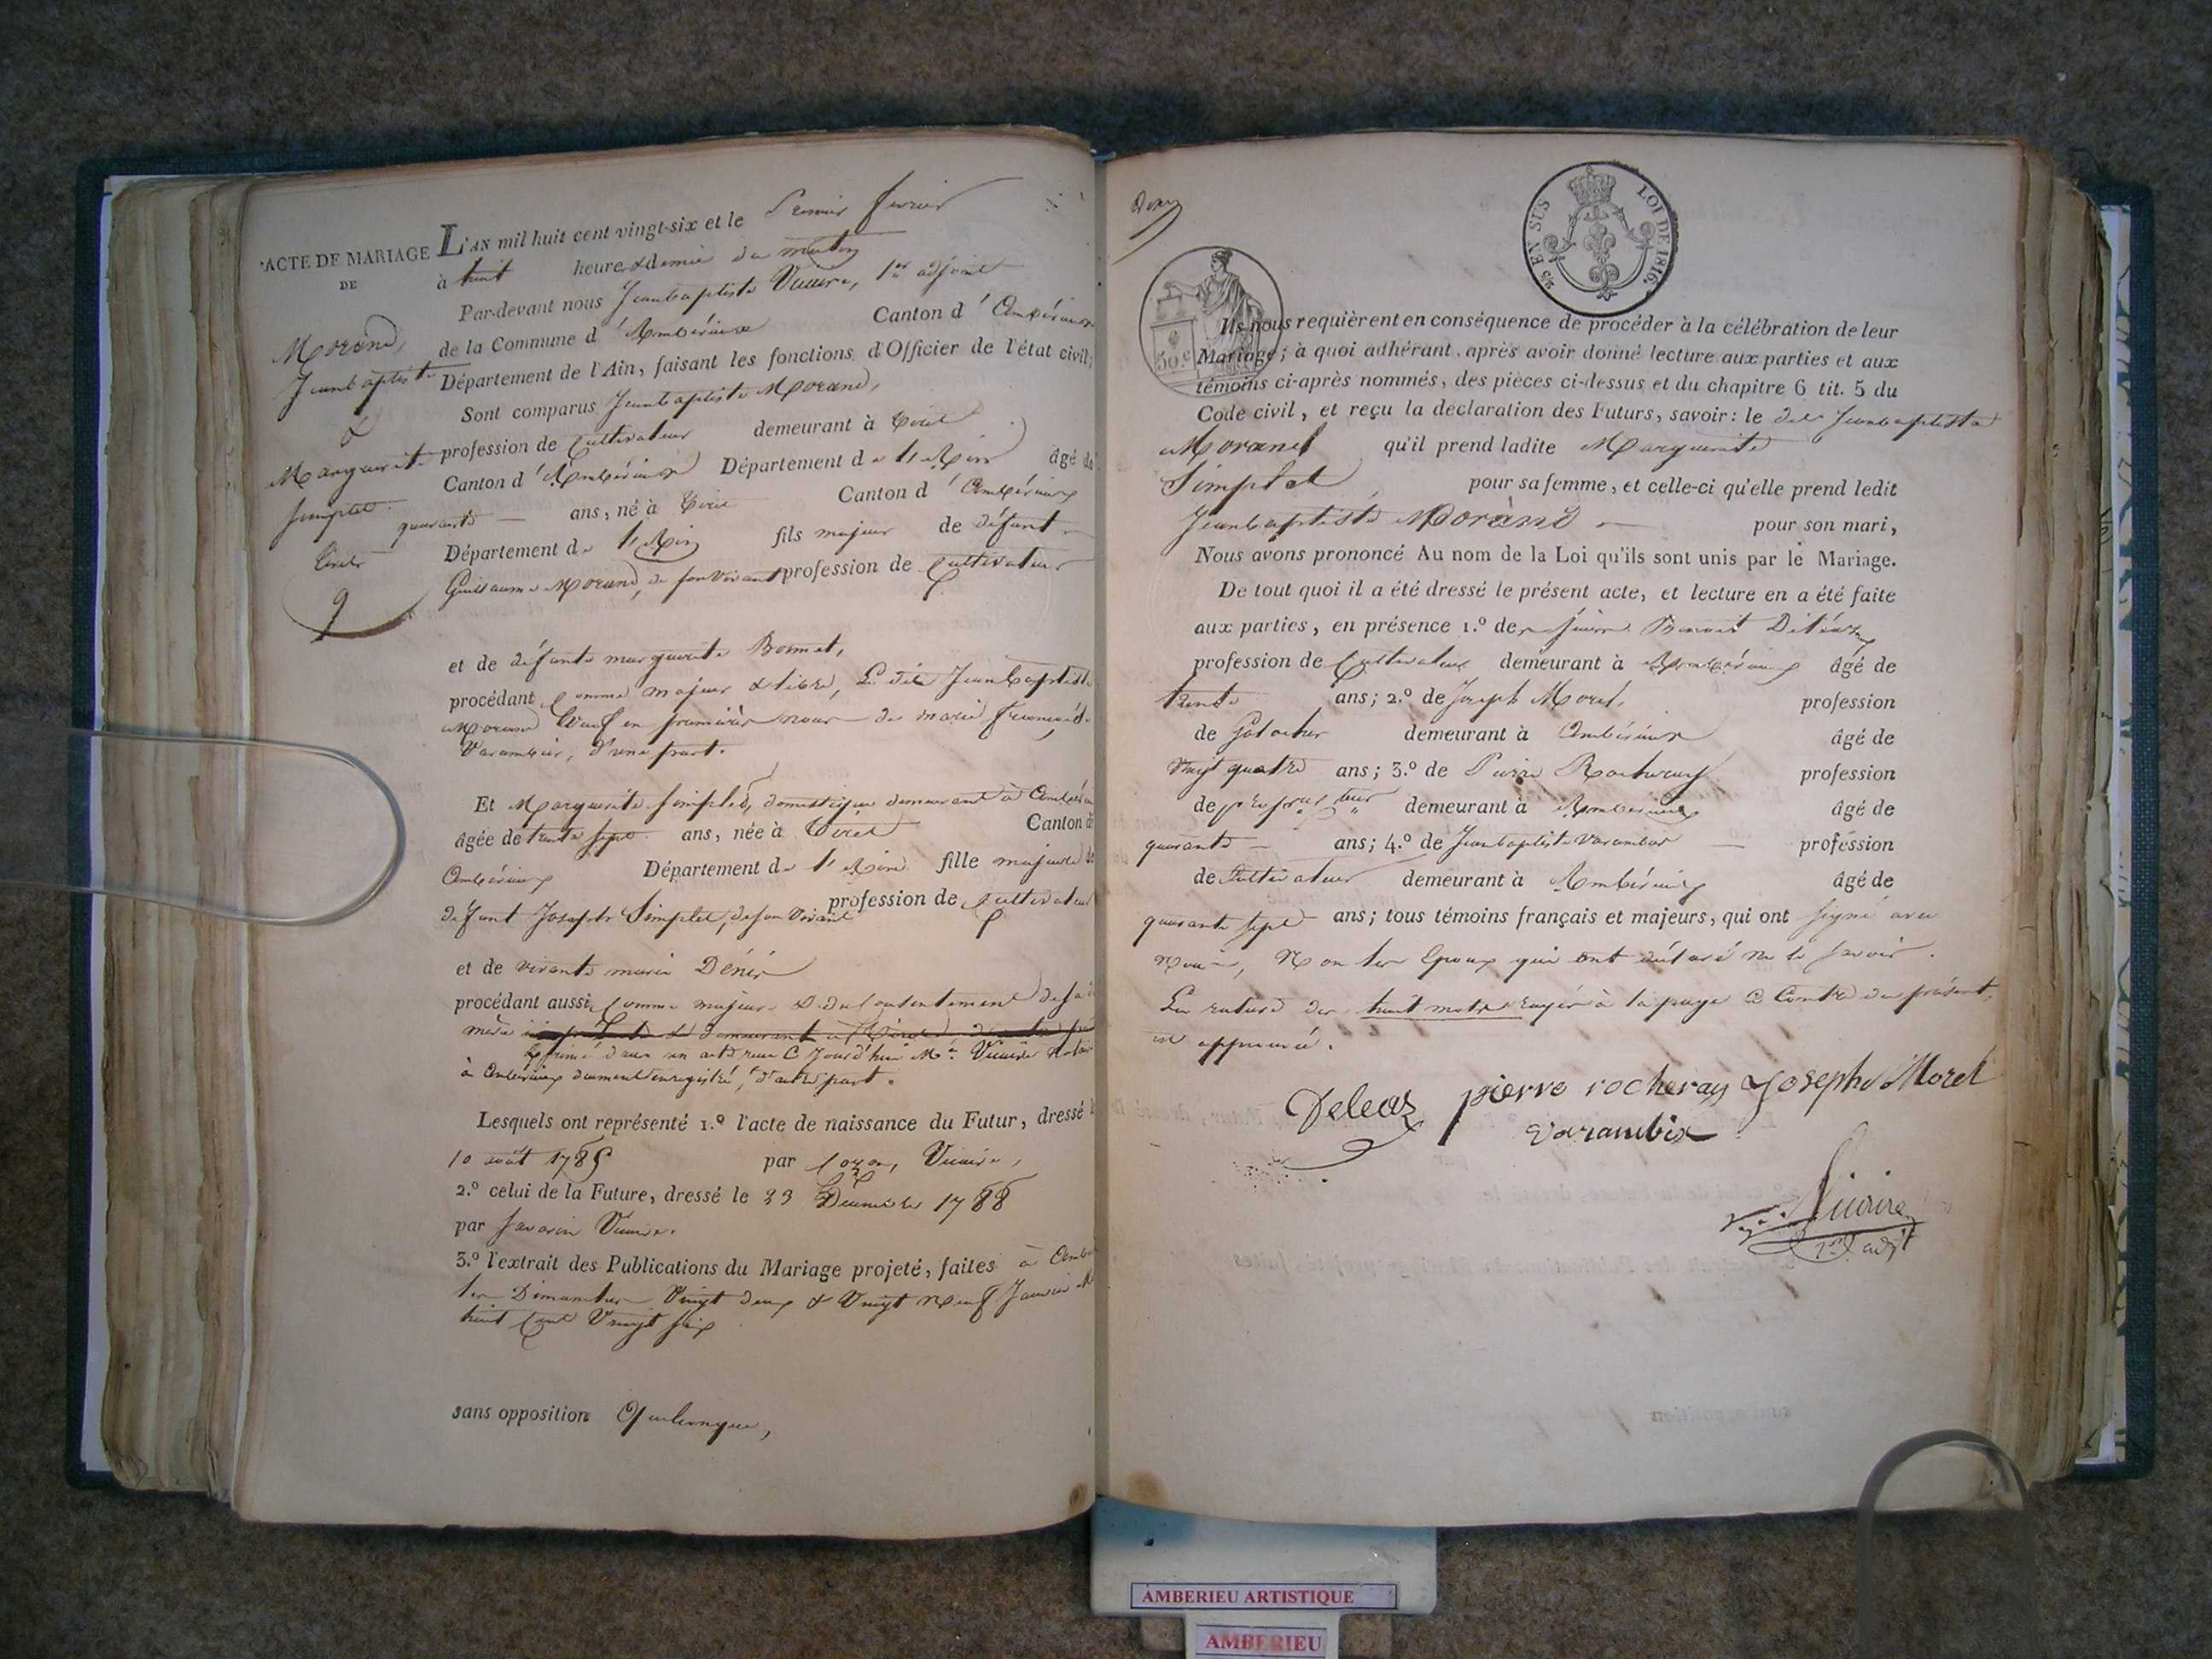 ACTE DE MARIAGE
DE
Morand,
Jeanbaptiste
&
Marguerite
Simplet
Tiret
9
L'AN mil huit cent vingt-six et le Premier février
à huit heure & demie du matin
Par-devant nous Jeanbaptiste Vicaire, 1er adjoint
de la Commune d'Ambérieux Canton d'Ambérieux
Département de l'Ain, faisant les fonctions d'Officier de l'état civil,
Sont comparus Jeanbaptiste Morand,
profession de Cultivateur demeurant à Tiret
Canton d'Ambérieux Département de l'Ain âgé de
quarante ans, né à Tiret Canton d'Ambérieux
Département de l'Ain fils majeur de défunt
Guillaume Morand, de son vivant profession de Cultivateur
et de défunte marguerite Bonnet,
procédant Comme majeur & libre, Le dit Jeanbaptiste
Morand Veuf en premières noces de marie françoise
Varambier, d'une part.
Et Marguerite Simplet, domestique demeurant à Ambérieux
âgée de trente sept ans, née à Tiret Canton d
Ambérieux Département de l'Ain fille majeure de
défunt Joseph Simplet, de son vivant profession de Cultivateur
et de vivante marie Dénis
procédant aussi Comme majeure & du Consentement de sa
mère
Exprimé dans un acte reçu C Jourd'hui Me. Vicaire Notaire
à Ambérieux dument enregistré, d'autre part.
Lesquels ont représenté 1.º l'acte de naissance du Futur, dressé le
10 août 1785 par Cozon, Vicaire,
2.º celui de la Future, dressé le 23 Décembre 1788
par Savarin Vicaire.
3.º l'extrait des Publications du Mariage projeté, faites à Ambé
les Dimanches Vingt deux & Vingt Neuf Janvier M
huit Cent Vingt Six
sans opposition Quelconque,
5/5 EN SUS LOI DE 1816.
30.c
Ils nous requièrent en conséquence de procéder à la célébration de leur
Mariage; à quoi adhérant, après avoir donné lecture aux parties et aux
témoins ci-après nommés, des pièces ci-dessus et du chapitre 6 tit. 5 du
Code civil, et reçu la declaration des Futurs, savoir: le dit Jeanbaptiste
Morand qu'il prend ladite Marguerite
Simplet pour sa femme, et celle-ci qu'elle prend ledit
Jeanbaptiste Morand pour son mari,
Nous avons prononcé Au nom de la Loi qu'ils sont unis par le Mariage.
De tout quoi il a été dressé le présent acte, et lecture en a été faite
aux parties, en présence 1.º de Benoit
profession de Cultivateur demeurant à Ambérieux âgé de
trente ans; 2.º de Joseph Morel, profession
de Galocher demeurant à Ambérieux âgé de
Vingt quatre ans; 3.º de Pierre profession
de demeurant à Ambérieux âgé de
quarante ans; 4.º de Jeanbaptiste Varambier profession
de Cultivateur demeurant à Ambérieux âgé de
quarante sept ans; tous témoins français et majeurs, qui ont Signé avec
Nous, Non les Epoux qui ont déclaré ne le savoir.
La rature des huit mots rayés à la page Ci Contre du présent,
est approuvée.
Deleaz pierre rocheray Joseph Morel
varambie
Vicaire
1er adjt
AMBERIEU ARTISTIQUE
AMBERIEU